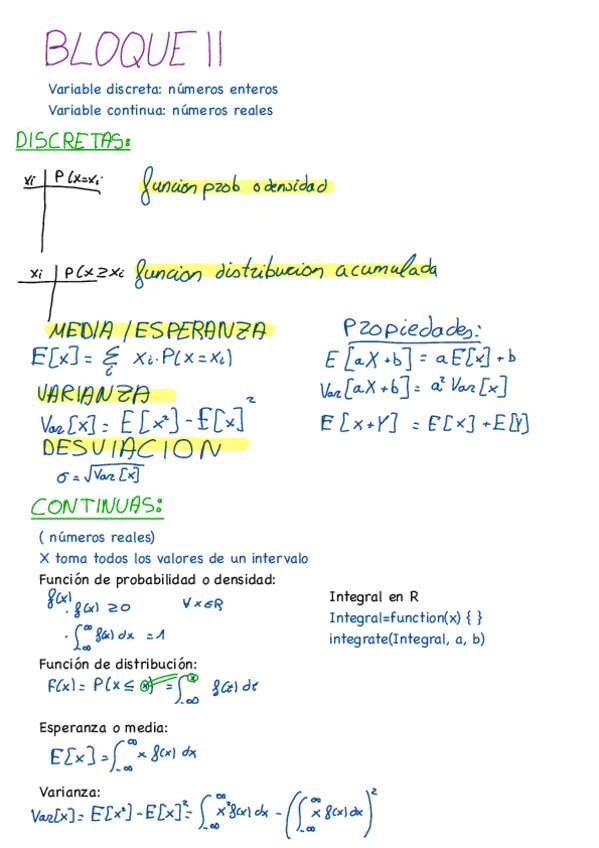 BLOQUE II
Variable discreta: números enteros
Variable continua: números reales
DISCRETAS:
xi | P(x=xi    función prob o densidad
xi | P(x≥xi    funcion distribucion acumulada
MEDIA / ESPERANZA
E[x] = Σi xi·P(x=xi)
VARIANZA
Var[x] = E[x²] - E[x]²
DESVIACION
σ = √Var[x]
Propiedades:
E[aX+b] = aE[x]+b
Var[aX+b] = a² Var[x]
E[x+Y] = E[x]+E[Y]
CONTINUAS:
( números reales)
X toma todos los valores de un intervalo
Función de probabilidad o densidad:
f(x)
· f(x) ≥ 0    ∀x∈R
· ∫_-∞^∞ f(x) dx = 1
Integral en R
Integral=function(x) { }
integrate(Integral, a, b)
Función de distribución:
F(x) = P(X ≤ x) = ∫_-∞^x f(t) dt
Esperanza o media:
E[x] = ∫_-∞^∞ x f(x) dx
Varianza:
Var[x] = E[x²] - E[x]² = ∫_-∞^∞ x² f(x) dx - (∫_-∞^∞ x f(x) dx)²